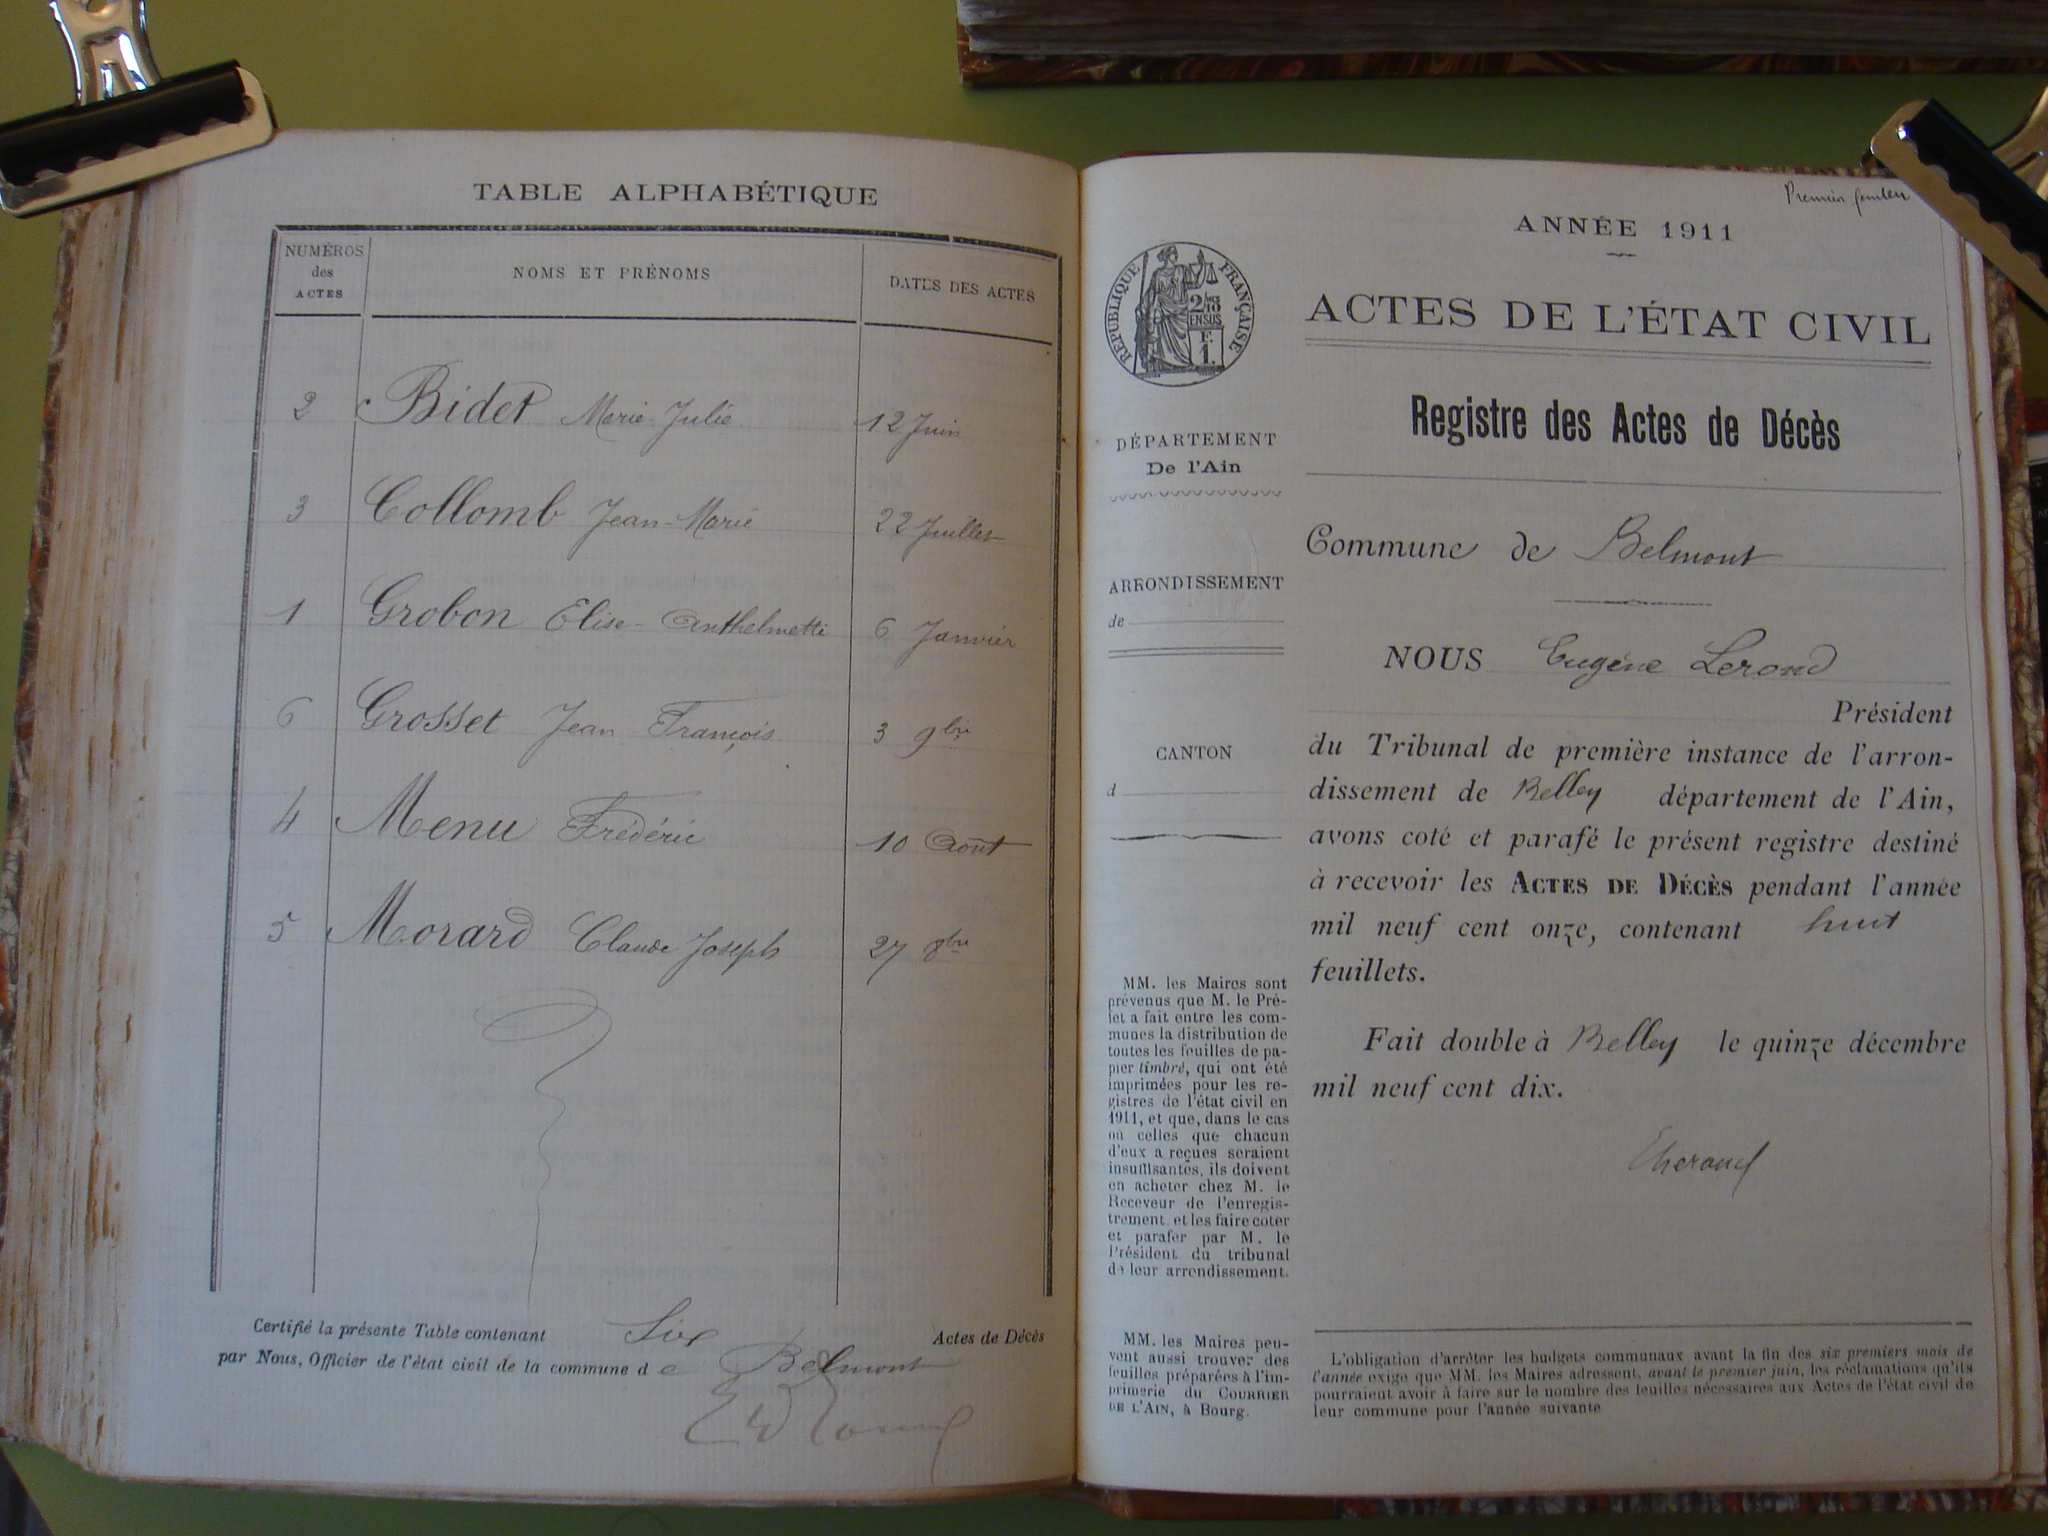 TABLE ALPHABÉTIQUE
NUMÉROS des ACTES
NOMS ET PRÉNOMS
DATES DES ACTES
2 Bidet Marie-Julie 12 Juin
3 Collomb Jean-Marie 22 Juillet
1 Grobon Elise-Anthelmette 6 Janvier
6 Grosset Jean François 3 9bre
4 Menu Frédéric 10 Août
5 Morard Claude Joseph 27 8bre
Certifié la présente Table contenant Six Actes de Décès
par Nous, Officier de l'état civil de la commune de Belmont
Premier
ANNÉE 1911
RÉPUBLIQUE FRANÇAISE
2/10 EN SUS
F.
1.
ACTES DE L'ÉTAT CIVIL
Registre des Actes de Décès
DÉPARTEMENT
De l'Ain
ARRONDISSEMENT
de
CANTON
d
MM. les Maires sont
prévenus que M. le Pré-
fet a fait entre les com-
munes la distribution de
toutes les feuilles de pa-
pier timbré, qui ont été
imprimées pour les re-
gistres de l'état civil en
1911, et que, dans le cas
où celles que chacun
d'eux a reçues seraient
insuffisantes, ils doivent
en acheter chez M. le
Receveur de l'enregis-
trement et les faire coter
et parafer par M. le
Président du tribunal
de leur arrondissement.
MM. les Maires peu-
vent aussi trouver des
feuilles préparées à l'im-
primerie du COURRIER
DE L'AIN, à Bourg.
Commune de Belmont
NOUS Eugène Lerond
Président
du Tribunal de première instance de l'arron-
dissement de Belley département de l'Ain,
avons coté et parafé le présent registre destiné
à recevoir les ACTES DE DÉCÈS pendant l'année
mil neuf cent onze, contenant huit
feuillets.
Fait double à Belley le quinze décembre
mil neuf cent dix.
L'obligation d'arrêter les budgets communaux avant la fin des six premiers mois de
l'année exige que MM. les Maires adressent, avant le premier juin, les réclamations qu'ils
pourraient avoir à faire sur le nombre des feuilles nécessaires aux Actes de l'état civil de
leur commune pour l'année suivante